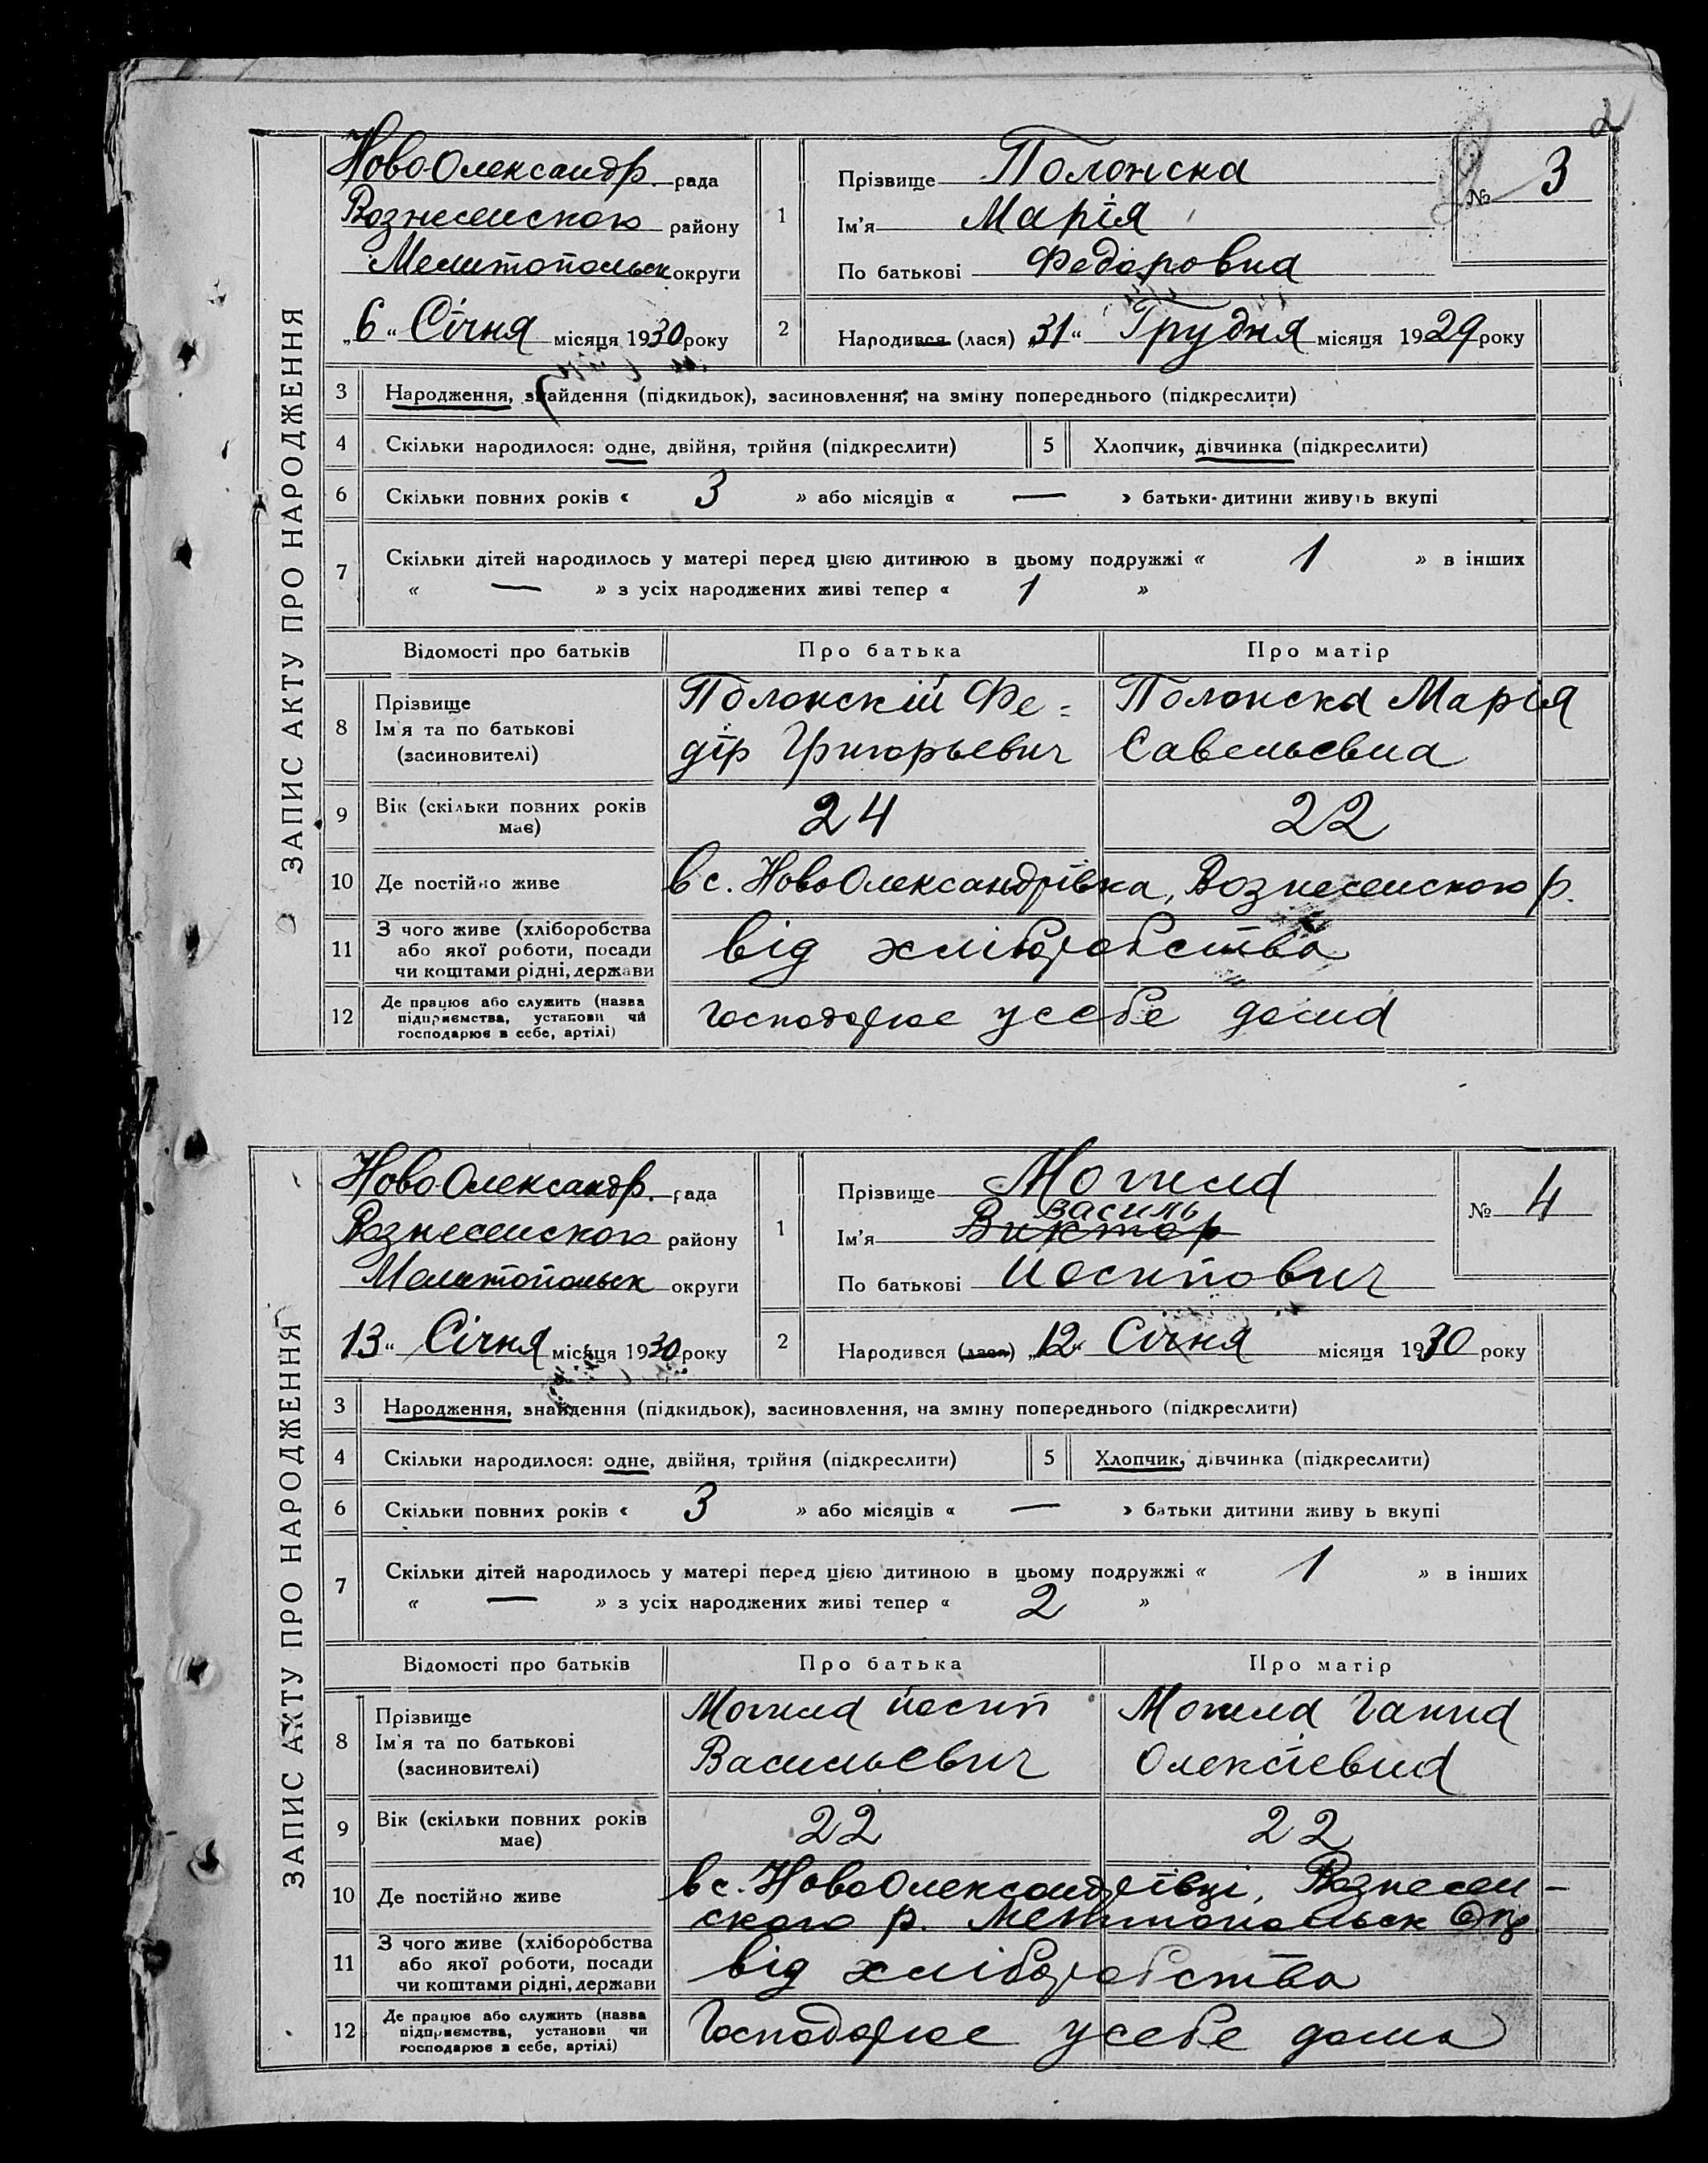 2
ЗАПИС АКТУ ПРО НАРОДЖЕННЯ
Ново-Олександр. рада
Вознесенского району
Мелитопольск округи
„6“ Січня місяця 1930 року
1
Прізвище Полонска
Ім'я Марія
По батькові Федоровна
№ 3
2 Народився (лася) „31“ Грудня місяця 1929 року
3 Народження, знайдення (підкидьок), засиновлення, на зміну попереднього (підкреслити)
4 Скільки народилося: одне, двійня, трійня (підкреслити) 5 Хлопчик, дівчинка (підкреслити)
6 Скільки повних років « 3 » або місяців « — » батьки дитини живуть вкупі
7 Скільки дітей народилось у матері перед цією дитиною в цьому подружжі « 1 » в інших
« — » з усіх народжених живі тепер « 1 »
Відомості про батьків Про батька Про матір
8 Прізвище
Ім'я та по батькові
(засиновителі)
Полонскій Фе=
дір Григорьевич
Полонска Марія
Савельевна
9 Вік (скільки повних років
має)
24 22
10 Де постійно живе в с. НовоОлександрівка, Вознесенского р.
11 З чого живе (хліборобства
або якої роботи, посади
чи коштами рідні, держави
від хліборобства
12 Де працює або служить (назва
підприємства, установи чи
господарює в себе, артілі)
господарює у себе дома
ЗАПИС АКТУ ПРО НАРОДЖЕННЯ
Ново-Олександр. рада
Вознесенского району
Мелитопольск округи
13“ Січня місяця 1930 року
1
Прізвище Могила
Василь
Ім'я Виктор
По батькові Иосипович
№ 4
2 Народився (лася) „12“ Січня місяця 1930 року
3 Народження, знайдення (підкидьок), засиновлення, на зміну попереднього (підкреслити)
4 Скільки народилося: одне, двійня, трійня (підкреслити) 5 Хлопчик, дівчинка (підкреслити)
6 Скільки повних років « 3 » або місяців « — » батьки дитини живу ь вкупі
7 Скільки дітей народилось у матері перед цією дитиною в цьому подружжі « 1 » в інших
« — » з усіх народжених живі тепер « 2 »
Відомості про батьків Про батька Про матір
8 Прізвище
Ім'я та по батькові
(засиновителі)
Могила Йосип
Васильевич
Могила Ганна
Олексієвна
9 Вік (скільки повних років
має)
22 22
10 Де постійно живе
в с. НовоОлександрівці, Вознесен-
ского р. Мелитопольск Окр
11 З чого живе (хліборобства
або якої роботи, посади
чи коштами рідні, держави
від хліборобства
12 Де працює або служить (назва
підприємства, установи чи
господарює в себе, артілі)
Господарює у себе дома